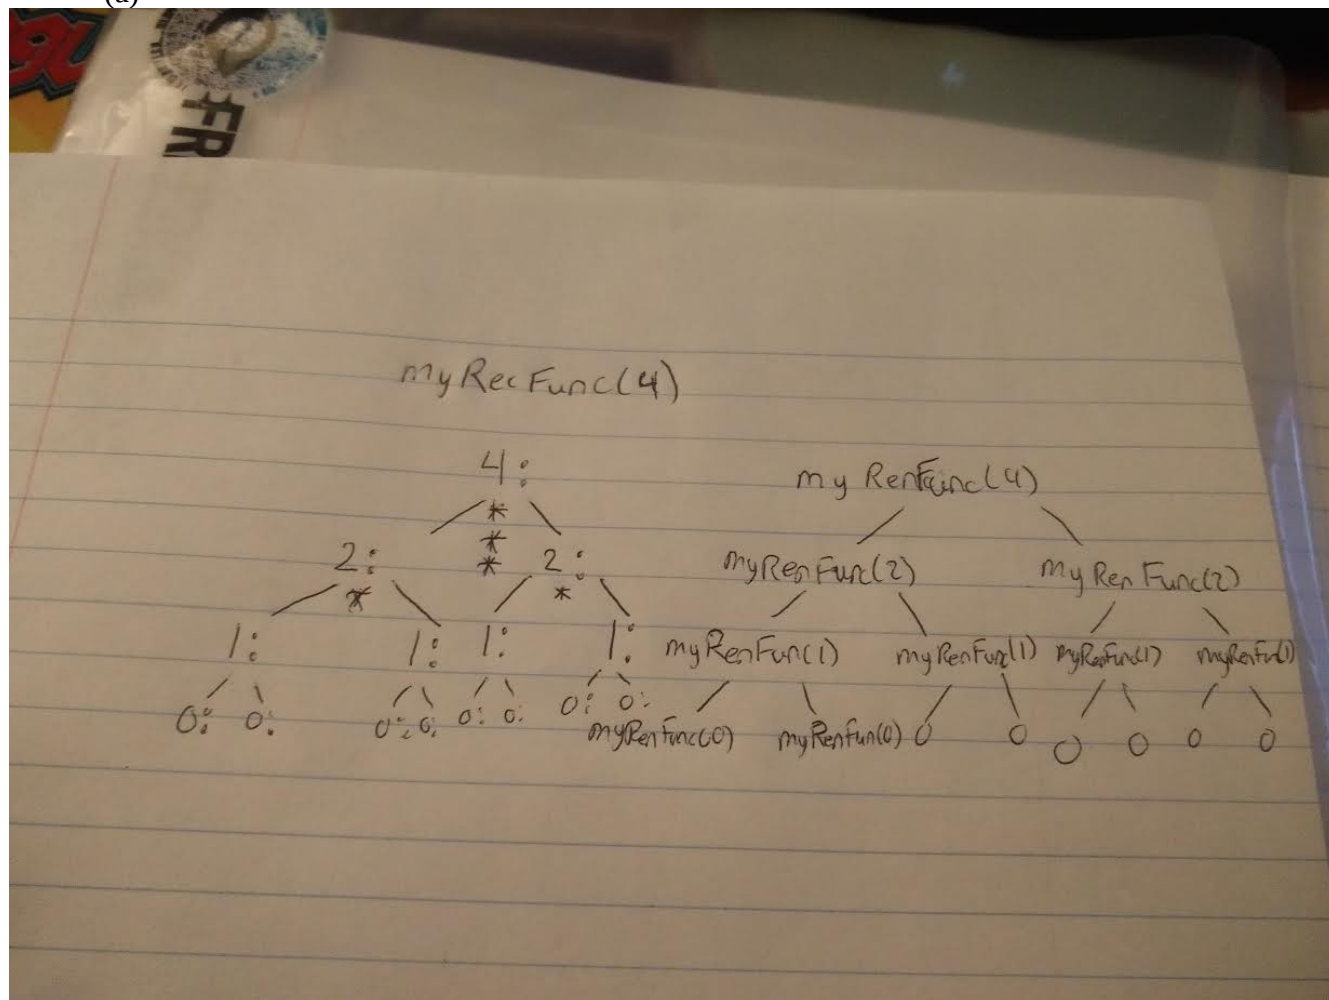 (a)
FR
myRecFunc(4)
4:
*
*
*
2: 2:
* *
1: 1: 1: 1:
0: 0: 0: 0: 0: 0: 0: 0:
myRenFunc(4)
myRenFunc(2) myRenFunc(2)
myRenFun(1) myRenFun(1) myRenFun(1) myRenFun(1)
myRenFunc(0) myRenFun(0) 0 0 0 0 0 0